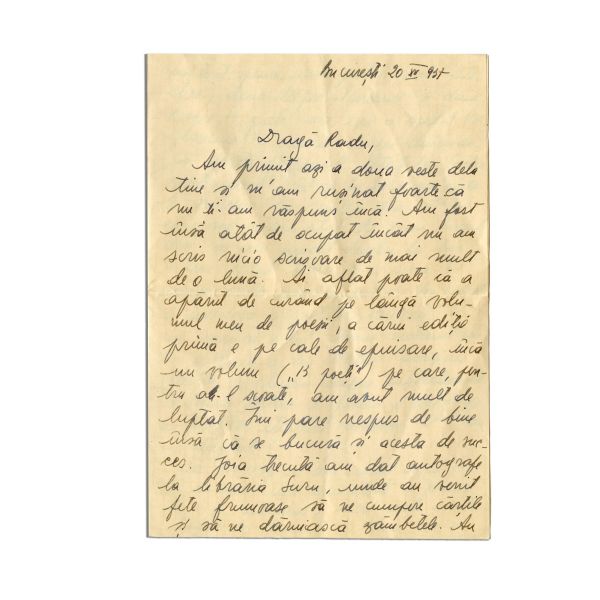 București 20 XII 937
Dragă Radu,
Am primit azi a doua veste dela
tine și m'am rușinat foarte că
nu ți-am răspuns încă. Am fost
însă atât de ocupat încât nu am
scris nicio scrisoare de mai mult
de o lună. Ai aflat poate că a
apărut de curând pe lângă volu-
mul meu de poesii, a cărui ediție
primă e pe cale de epuisare, încă
un volum („13 poeți") pe care, pen-
tru a-l scoate, am avut mult de
luptat. Îmi pare nespus de bine
însă că se bucură și acesta de suc-
ces. Joia trecută am dat autografe
la librăria Suru, unde au venit
fete frumoase să ne cumpere cărțile
și să ne dărniască zâmbetele. Au